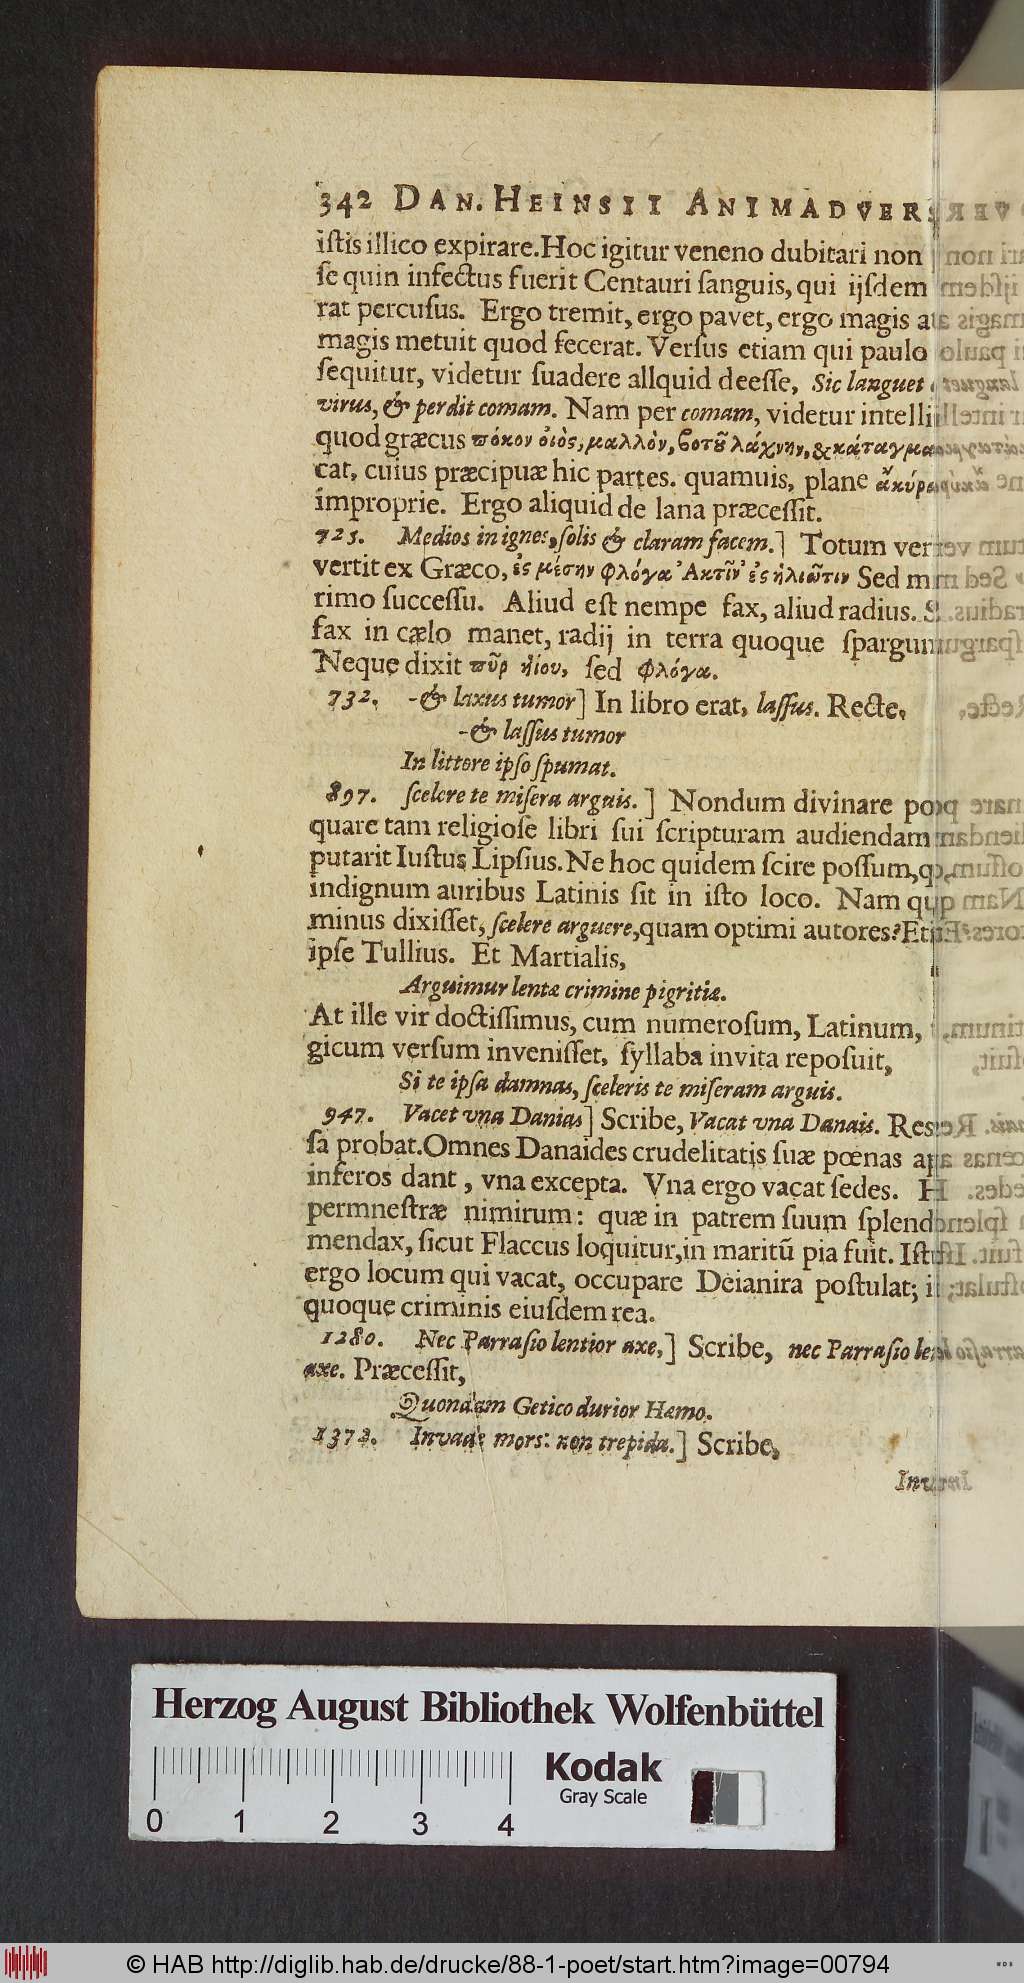 342 DAN. HEINSII ANIMADVERS
iſtis illico expirare. Hoc igitur veneno dubitari non
ſe quin infectus fuerit Centauri ſanguis, qui ijſdem
rat percuſus. Ergo tremit, ergo pavet, ergo magis a
magis metuit quod fecerat. Verſus etiam qui paulo
ſequitur, videtur ſuadere allquid deeſſe, Sic languet
virus, & perdit comam. Nam per comam, videtur intelli
quod græcus πόκον οἰὸς, μαλλὸν, βοτοῦ λάχνην, & κάταγμα
cat, cuius præcipuæ hic partes. quamuis, plane ἄκύρ
improprie. Ergo aliquid de lana præceſſit.
725. Medios in ignes, ſolis & claram facem.] Totum ver
vertit ex Græco, ἐς μέσην φλόγα Ἀκτῖν' ἐς ἡλιῶτιν Sed m
rimo ſucceſſu. Aliud eſt nempe fax, aliud radius. S
fax in cælo manet, radij in terra quoque ſpargun
Neque dixit πῦρ ἡίου, ſed φλόγα.
732. -& laxus tumor] In libro erat, laſſus. Recte,
-& laſſus tumor
In littore ipſo ſpumat.
897. ſcelere te miſera arguis.] Nondum divinare po
quare tam religioſe libri ſui ſcripturam audiendam
putarit Iuſtus Lipſius. Ne hoc quidem ſcire poſſum, q
indignum auribus Latinis ſit in iſto loco. Nam qu
minus dixiſſet, ſcelere arguere, quam optimi autores? Et
ipſe Tullius. Et Martialis,
Arguimur lentæ crimine pigritiæ.
At ille vir doctiſſimus, cum numeroſum, Latinum,
gicum verſum inveniſſet, ſyllaba invita repoſuit,
Si te ipſa damnas, ſceleris te miſeram arguis.
947. Vacet vna Danias] Scribe, Vacat vna Danais. Res
ſa probat. Omnes Danaides crudelitatis ſuæ pœnas ap
inferos dant, vna excepta. Vna ergo vacat ſedes. H
permneſtræ nimirum: quæ in patrem ſuum ſplend
mendax, ſicut Flaccus loquitur, in maritū pia fuit. Iſt
ergo locum qui vacat, occupare Deianira poſtulat; i
quoque criminis eiuſdem rea.
1280. Nec Parraſio lentior axe,] Scribe, nec Parraſio le
axe. Præceſſit,
Quondam Getico durior Hæmo.
1372. Invade mors: non trepida.] Scribe,
Herzog August Bibliothek Wolfenbüttel
Kodak
Gray Scale
0 1 2 3 4
© HAB http://diglib.hab.de/drucke/88-1-poet/start.htm?image=00794